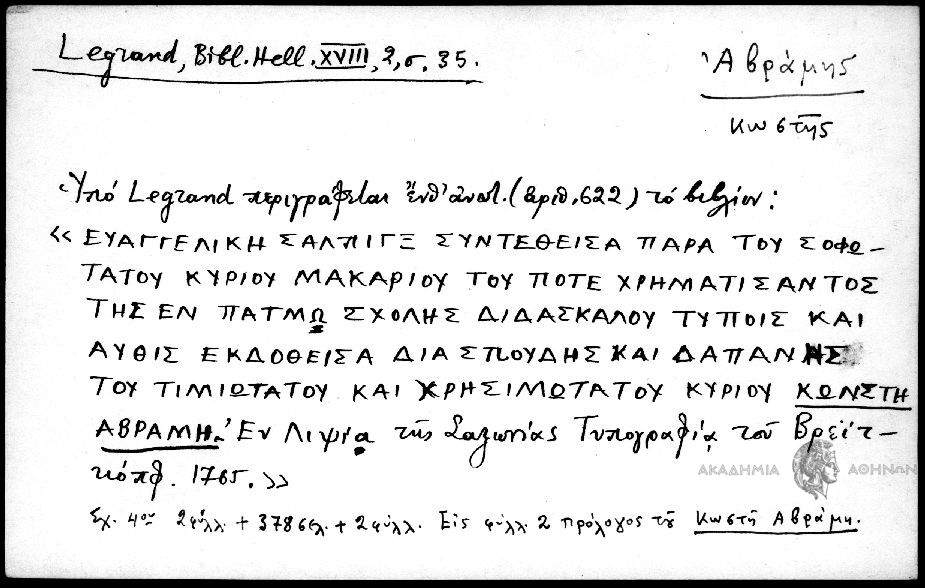 Legrand, Bibl. Hell. XVIII, 2, σ. 35.
Ἀβράμης
Κωστῆς
Ὑπό Legrand περιγράφεται ἐνθ' ἀνωτ. (ἀριθ. 622) τό βιβλίον:
« ΕΥΑΓΓΕΛΙΚΗ ΣΑΛΠΙΓΞ ΣΥΝΤΕΘΕΙΣΑ ΠΑΡΑ ΤΟΥ ΣΟΦΩ-
ΤΑΤΟΥ ΚΥΡΙΟΥ ΜΑΚΑΡΙΟΥ ΤΟΥ ΠΟΤΕ ΧΡΗΜΑΤΙΣΑΝΤΟΣ
ΤΗΣ ΕΝ ΠΑΤΜῼ ΣΧΟΛΗΣ ΔΙΔΑΣΚΑΛΟΥ ΤΥΠΟΙΣ ΚΑΙ
ΑΥΘΙΣ ΕΚΔΟΘΕΙΣΑ ΔΙΑ ΣΠΟΥΔΗΣ ΚΑΙ ΔΑΠΑΝΗΣ
ΤΟΥ ΤΙΜΙΩΤΑΤΟΥ ΚΑΙ ΧΡΗΣΙΜΩΤΑΤΟΥ ΚΥΡΙΟΥ ΚΩΝΣΤΗ
ΑΒΡΑΜΗ. Ἐν Λιψίᾳ τῆς Σαξωνίας Τυπογραφίᾳ τοῦ Βρεϊτ-
κόπφ. 1765. »
ΑΚΑΔΗΜΙΑ ΑΘΗΝΩΝ
Σχ. 4ον 2 φύλλ. + 378 σελ. + 2 φύλλ. Εἰς φύλλ. 2 πρόλογος τοῦ Κωστῆ Ἀβράμη.